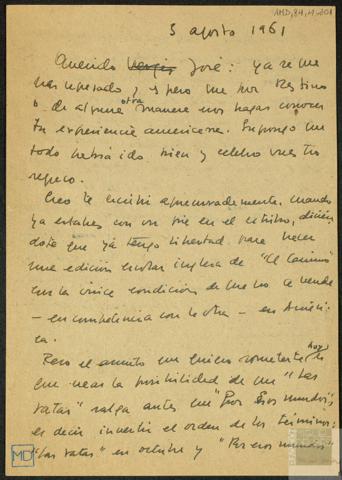 AMD, 84, 4, 201
5 agosto 1961
Querido Vergés José: ya se que
has regresado y espero que por Destino
o de alguna otra manera nos hagas conocer
tu experiencia americana. Supongo que
todo habrá ido bien y celebro vuestro
regreso.
Creo te escribí apresuradamente, cuando
ya estabas con un pie en el estribo, dicién
dote que ya tengo libertad para hacer
una edición escolar inglesa de "El Camino"
con la única condición de que no se venda
— en competencia con la otra — en Améri-
ca.
Pero el asunto que quiero someterte hoy es
que veas la posibilidad de que "Las
ratas" salga antes que "Por esos mundos",
es decir invertir el orden de los términos:
"Las ratas" en octubre y "Por esos mundos"
MD